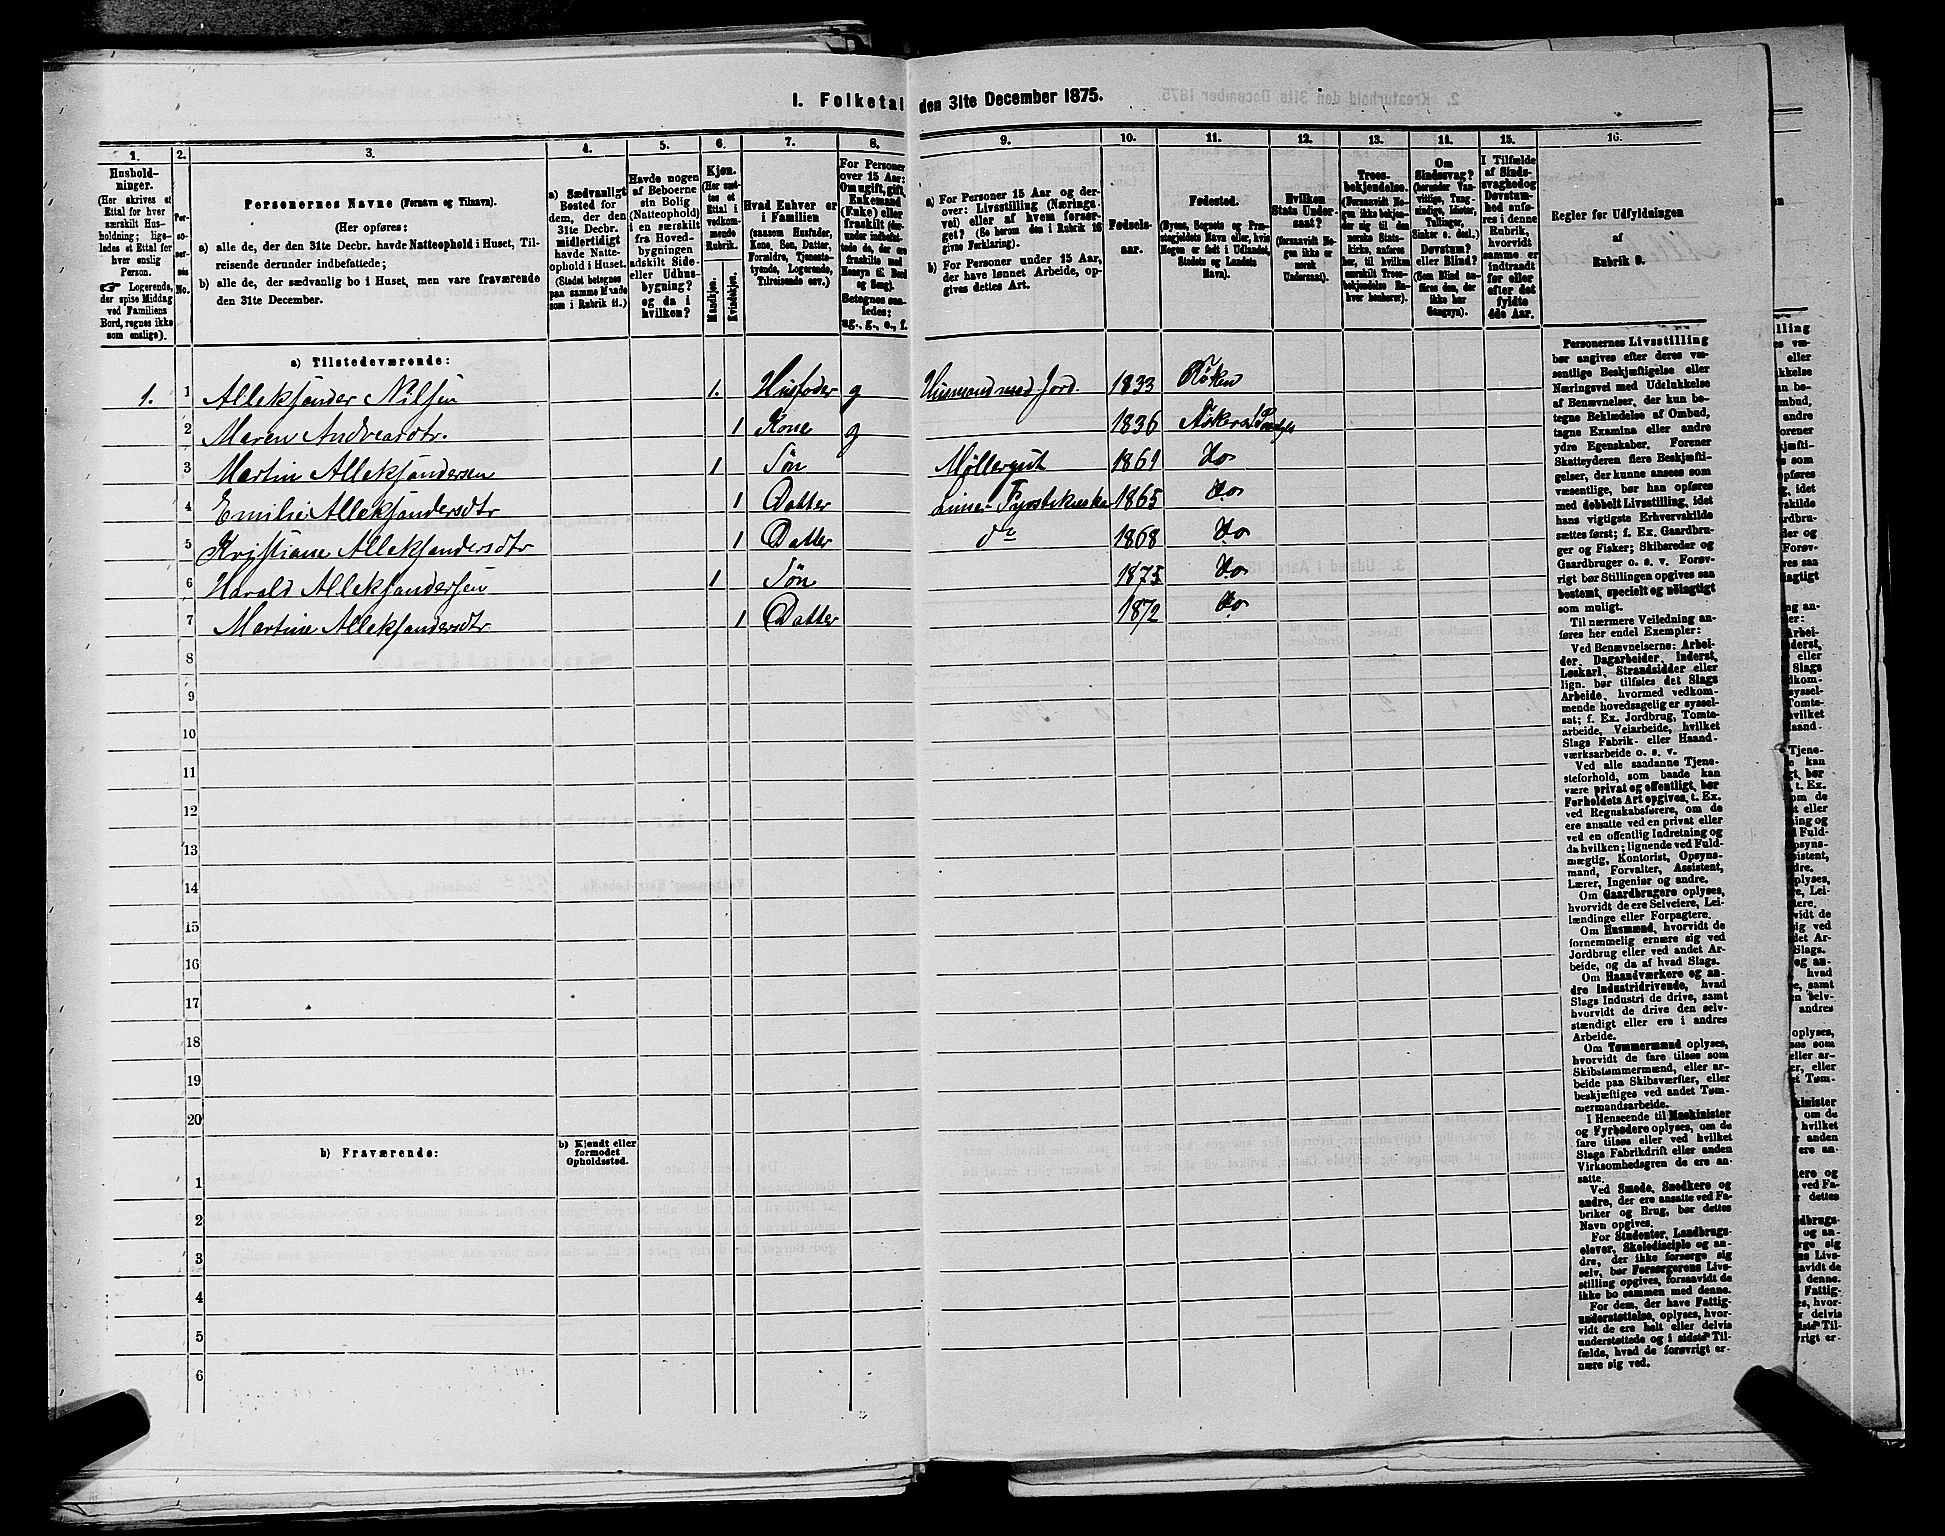 I. Folketal den 31te December 1875.
1. 2. 3. 4. 5. 6. 7. 8. 9. 10. 11. 12. 13. 14. 15. 16.
Husholdninger.
(Her skrives et
Ettal for hver
særskilt Husholdning;
ligeledes et Ettal for
hver enslig
Person.
☞ Logerende,
der spise Middag
ved Familiens
Bord, regnes ikke
som enslige).
Personernes No.
Personernes Navne (Fornavn og Tilnavn).
(Her opføres:
a) alle de, der den 31te Decbr. havde Natteophold i Huset, Tilreisende derunder indbefattede;
b) alle de, der sædvanlig bo i Huset, men vare fraværende
den 31te December.
a) Sædvanligt
Bosted for
dem, der den
31te Decbr.
midlertidigt
havde Natteophold i Huset.
(Stedet betegnes
paa samme Maade
som i Rubrik 11.)
Havde nogen
af Beboerne
sin Bolig
(Natteophold)
i en særskilt
fra Hovedbygningen
adskilt Side-
eller Udhusbygning?
og da i
hvilken?
Kjøn.
(Her sættes et
Ettal i
vedkommende
Rubrik.
Mandkjøn.
Kvindekjøn.
Hvad Enhver er
i Familien
(saasom Husfader,
Kone, Søn, Datter,
Forældre, Tjenestetyende, Logerende,
Tilreisende osv.)
For Personer
over 15 Aar:
Om ugift, gift,
Enkemand
(Enke) eller
fraskilt
Betegnes saaledes:
ug., g., e., f.
a) For Personer 15 Aar og derover: Livsstilling (Næringsvei) eller af hvem forsørget? (Se herom den i Rubrik 16
givne Forklaring).
b) For Personer under 15 Aar,
der have lønnet Arbeide, opgives dettes Art.
Fødselsaar.
Fødested.
(Byens, Sognets og Præstegjeldets Navn eller, hvis
Nogen er født i Udlandet,
Stedets og Landets
Navn).
Hvilken
Stats Undersaat?
(forsaavidt Nogen ikke er
norsk
Undersaat).
Troesbekjendelse.
(Forsaavidt Nogen ikke bekjender sig til den
norske Statskirke, anføres
her, til hvilken
særskilt Troesbekjendelse Enhver henhører).
Om
Sindssvag?
(herunder Vanvittige, Tungsindige, Idioter,
Tullinger,
Sinker o. desl.)
Døvstum?
eller Blind?
(Som Blind anføres den, der
ikke har
Gangsyn).
I Tilfælde
af Sindssvaghed og
Døvstumhed anføres i denne
Rubrik,
hvorvidt
samme er
indtraadt
før eller
efter det
fyldte
4de Aar.
Regler for Udfyldningen
af
Rubrik 9.
a) Tilstedeværende:
1. 1 Alleksander Nilsen 1. Husfader g Husmand med Jord. 1833 Røken
2 Maren Andreasdtr. 1 Kone g 1836 Asker
3 Martin Alleksandersen 1 Søn Møllergut 1861 Do
4 Emilie Alleksandersdtr 1 Datter 1865 Do
5 Kristiane Alleksandersdtr 1 Datter do 1868 Do
6 Harald Alleksandersen 1 Søn 1875 Do
7 Martine Alleksandersdtr 1 Datter 1872 Do
8
9
10
11
12
13
14
15
16
17
18
19
20
b) Fraværende:
b) Kjendt eller
formodet
Opholdssted.
1
2
3
4
5
6
Personernes Livsstilling
bør angives efter deres væsentlige Beskjæftigelse eller
Næringsvei med Udelukkelse
af Benævnelser, der kun betegne Beklædelse af Ombud,
tagne Examina eller andre
ydre Egenskaber. Forener
Skatteyderen flere Beskjæftigelser, der kunne ansees som
væsentlige, bør han opføres
med dobbelt Livsstilling, idet
hans vigtigste Erhvervskilde
sættes først; f. Ex. Gaardbruger og Fisker; Skibsreder og
Gaardbruger o. s. v. Forøvrigt bør Stillingen opgives saa
bestemt, specielt og nøiagtigt
som muligt.
Til nærmere Veiledning anføres her endel Exempler:
Ved Benævnelserne: Arbeider, Dagarbeider, Inderst,
Løskarl, Strandsidder eller
lign. bør tilføies det Slags
Arbeide, hvormed vedkommende hovedsagelig er sysselsat; f. Ex. Jordbrug, Tomtearbeide, Veiarbeide, hvilket
Slags Fabrik- eller Haandværksarbeide o. s. v.
Ved alle saadanne Tjenesteforhold, som baade kan
være privat og offentligt, bør
Forholdets Art opgives, t. Ex.
ved Regnskabsførere, om de
ere ansatte ved en privat eller
ved en offentlig Indretning og
da hvilken; lignende ved Fuldmægtig, Kontorist, Opsynsmand, Forvalter, Assistent,
Lærer, Ingeniør og andre.
Om Gaardbrugere oplyses,
hvorvidt de ere Selveiere, Leilændinge eller Forpagtere.
Om Husmænd, hvorvidt de
fornemmelig ernære sig ved
Jordbrug eller ved andet Arbeide, og da af hvad Slags.
Om Haandværkere og andre Industridrivende, hvad
Slags Industri de drive, samt
hvorvidt de drive den selvstændigt eller ere i andres
Arbeide.
Om Tømmermænd oplyses,
hvorvidt de fare tilsøs som
Skibstømmermænd, eller arbeide paa Skibsværfter, eller
beskjæftiges ved andet Tømmermandsarbeide.
I Henseende til Maskinister
og Fyrbødere oplyses, om de
fare tilsøs eller ved hvilket
Slags Fabrikdrift eller anden
Virksomhedsgren de ere ansatte.
Ved Smede, Snedkere og
andre, der ere ansatte ved Fabriker og Brug, bør dettes
Navn opgives.
For Studenter, Landbrugselever, Skoledisciple og andre, der ikke forsørge sig
selv, bør Forsørgerens Livsstilling opgives, forsaavidt de
ikke bo sammen med denne.
For dem, der have Fattigunderstøttelse, oplyses, hvorvidt de ere helt eller delvis
understøttede og i sidste Tilfælde, hvad de forøvrigt ernære sig ved.